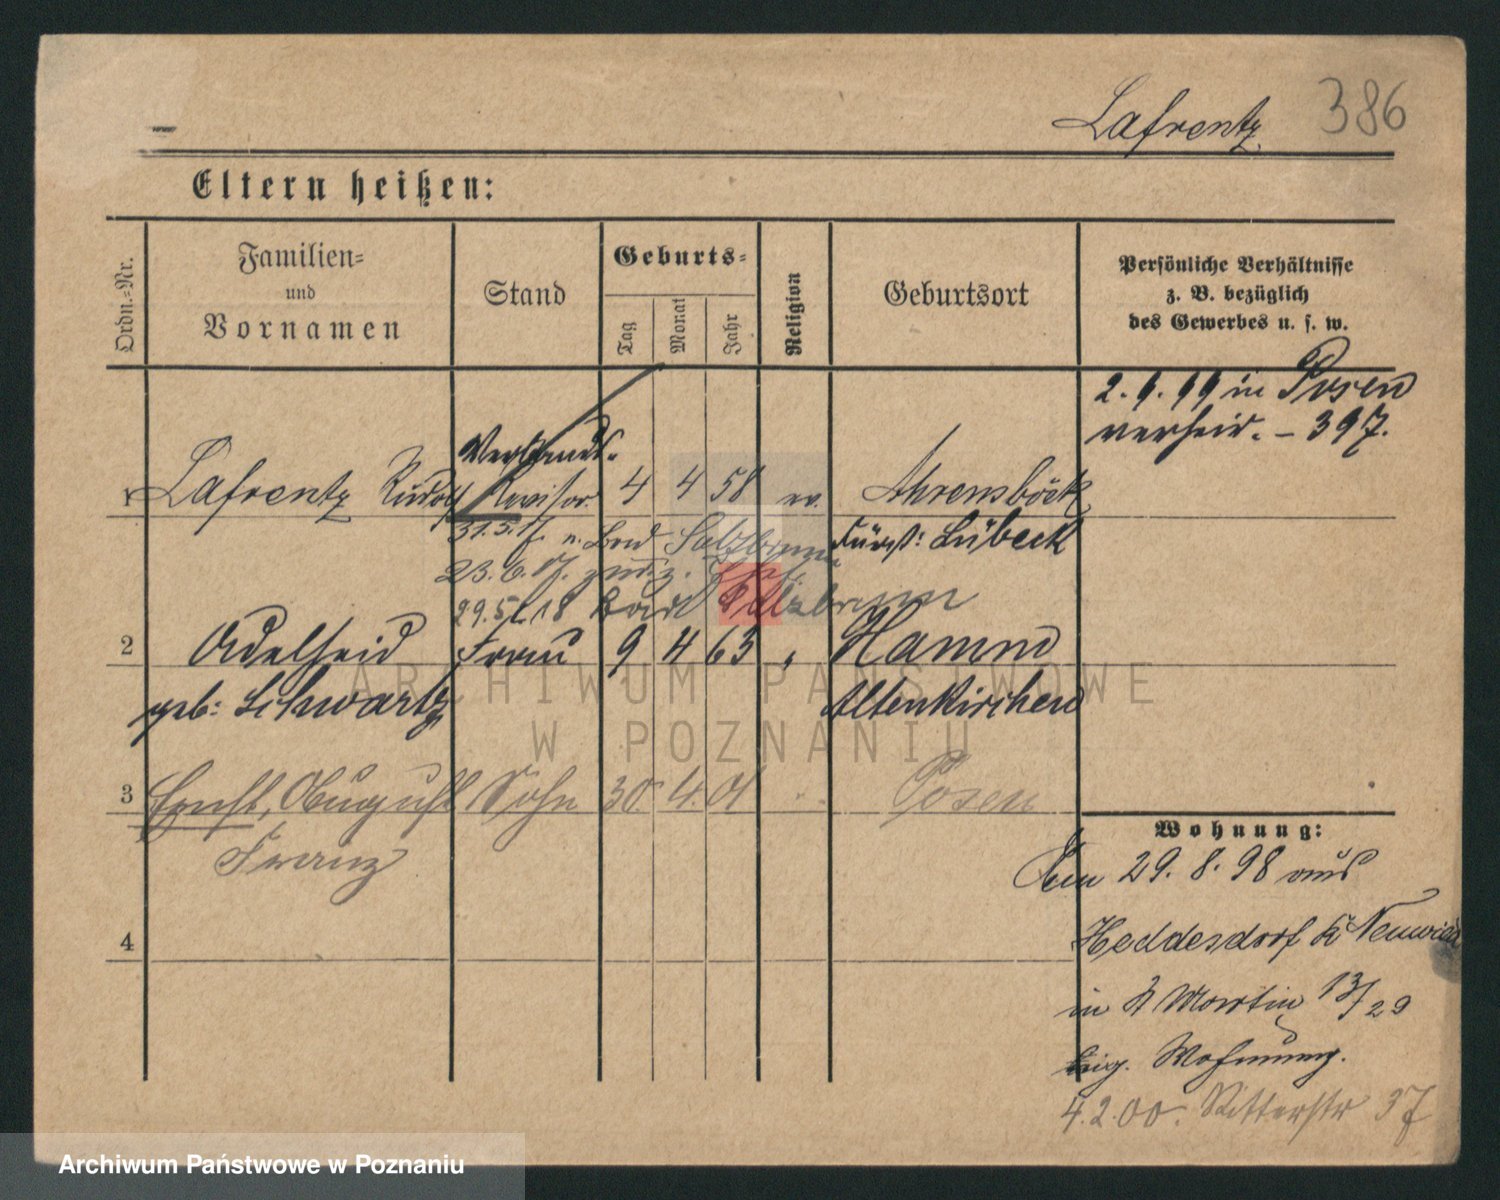 Lafrentz 386
Eltern heißen:
Ordn.=Nr.
Familien=
und
Vornamen
Stand
Geburts=
Tag
Monat
Jahr
Religion
Geburtsort
Persönliche Verhältnisse
z. B. bezüglich
des Gewerbes u. s. w.
2. 9. 99 in Posen
verheir. - 397.
Verbands-
1 Lafrentz Rudolf Revisor 4 4 58 ev. Ahrensböck
Fürst: Lübeck
31.5.17. n. Bad Salzbrunn
23.6.17. zurück.
29.5.18 Bad Salzbrunn
2 Adelheid Frau 9 4 63 " Hamm
geb: Schwartz Altenkirchen
3 Ernst, August Sohn 30 4. 01 Posen
Franz
4
Wohnung:
Den 29. 8. 98 aus
Heddesdorf Kr Neuwied
in St Martin 13/29
eig. Wohnung.
4.2.00. Ritterstr 37
ARCHIWUM PAŃSTWOWE
W POZNANIU
Archiwum Państwowe w Poznaniu